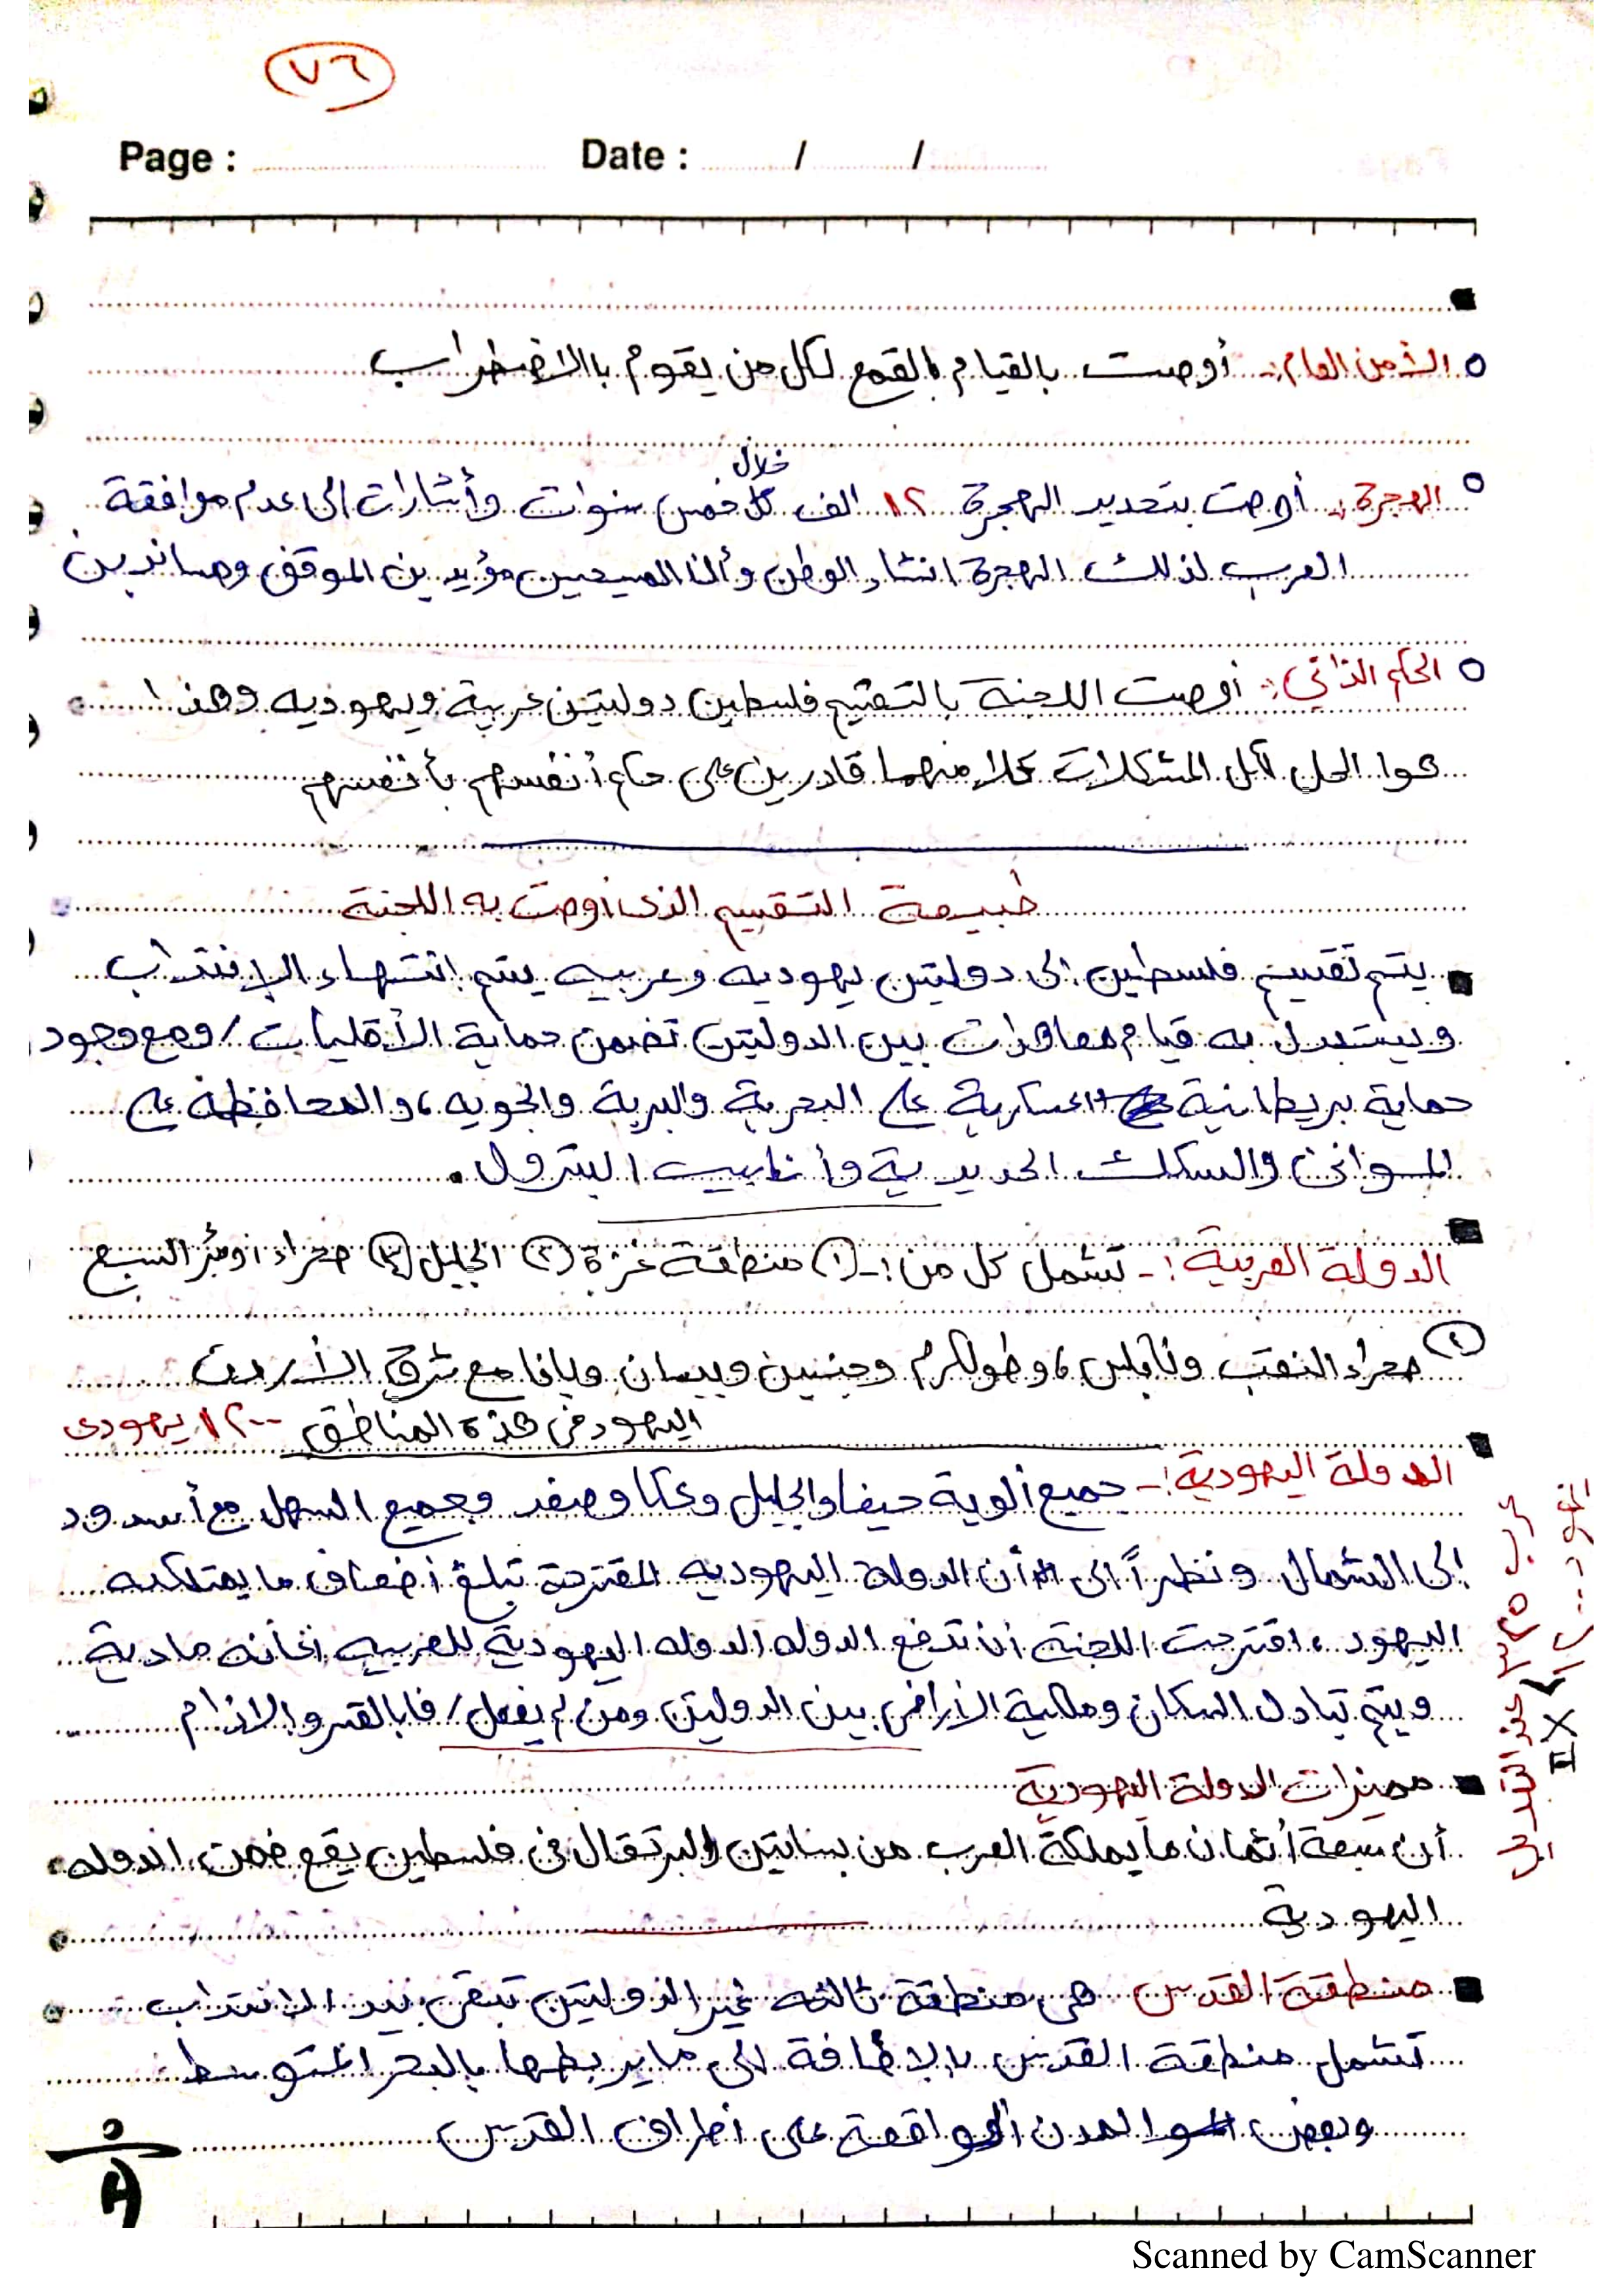 ٧٦
Page : Date : / /
الأمن العام :- أوصت بالقيام بالقمع لكل من يقوم باالاضطراب
خلال
الهجرة :- أوصت بتحديد الهجرة ١٢ الف كل خمس سنوات وأشارات الى عدم موافقة
العرب لذلك الهجرة انشاء الوطن وأن المسيحين مؤيدين الموقف ومساندين
الحكم الذاتي :- أوصت اللجنة بالتقيم فلسطين دولتين عربية ويهوديه وهذا
هوا الحل لكل المشكلات كلا منهما قادرين على حكم أنفسهم بأنفسهم
طبيعة التقسيم الذى اوصت به اللجنة
يتم تقسيم فلسطين الى دولتين يهوديه وعربيه يتم انتهاء الإنتداب
ويستبدل به قيام معاهدات بين الدولتين تضمن حماية الأقليات / ومع وجود
حماية بريطانية عسكرية على البحرية والبرية والجويه ، والمحافظه على
الموانئ والسكك الحديدية وأنابيب البترول .
الدولة العربية :- تشمل كل من :- ① منطقة غزة ② الجليل ③ صحراء وبئر السبع
④ صحراء النقب ونابلس ، وطولكرم وجنين وبيسان ويافا مع شرق الأردن
اليهود في هذة المناطق ١٢٠٠ يهودى
الدولة اليهودية :- جميع ألوية حيفا والجليل وعكا وصفد وجميع السهل مع أسدود
إلى الشمال ونظراً الى أن الدولة اليهوديه المقترحة تبلغ أضعاف ما يمتلكه
اليهود ، اقترحت اللجنة أن تدفع الدوله الدوله اليهودية للعربيه اعانه مادية
ويتم تبادل السكان وملكية الأراضى بين الدولتين ومن لم يفعل / فا بالقسر والالزام
مميزات الدولة اليهودية
أن سبعة أثمان ما يملكة العرب من بساتين البرتقال فى فلسطين يقع ضمن الدوله
اليهودية
منطقة القدس هى منطقة ثالثه غير الدولتين تبقى بيد الانتداب
تشمل منطقة القدس بالإضافة الى ما يربطها بالبحر المتوسط
وبعض المدن الواقعة على اطراف القدس
Scanned by CamScanner